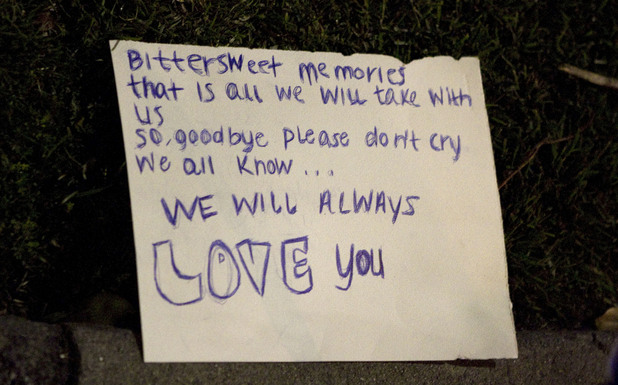 Bittersweet memories
that is all we will take with
us
so, goodbye please don't cry
we all know...
WE WILL ALWAYS
LOVE you